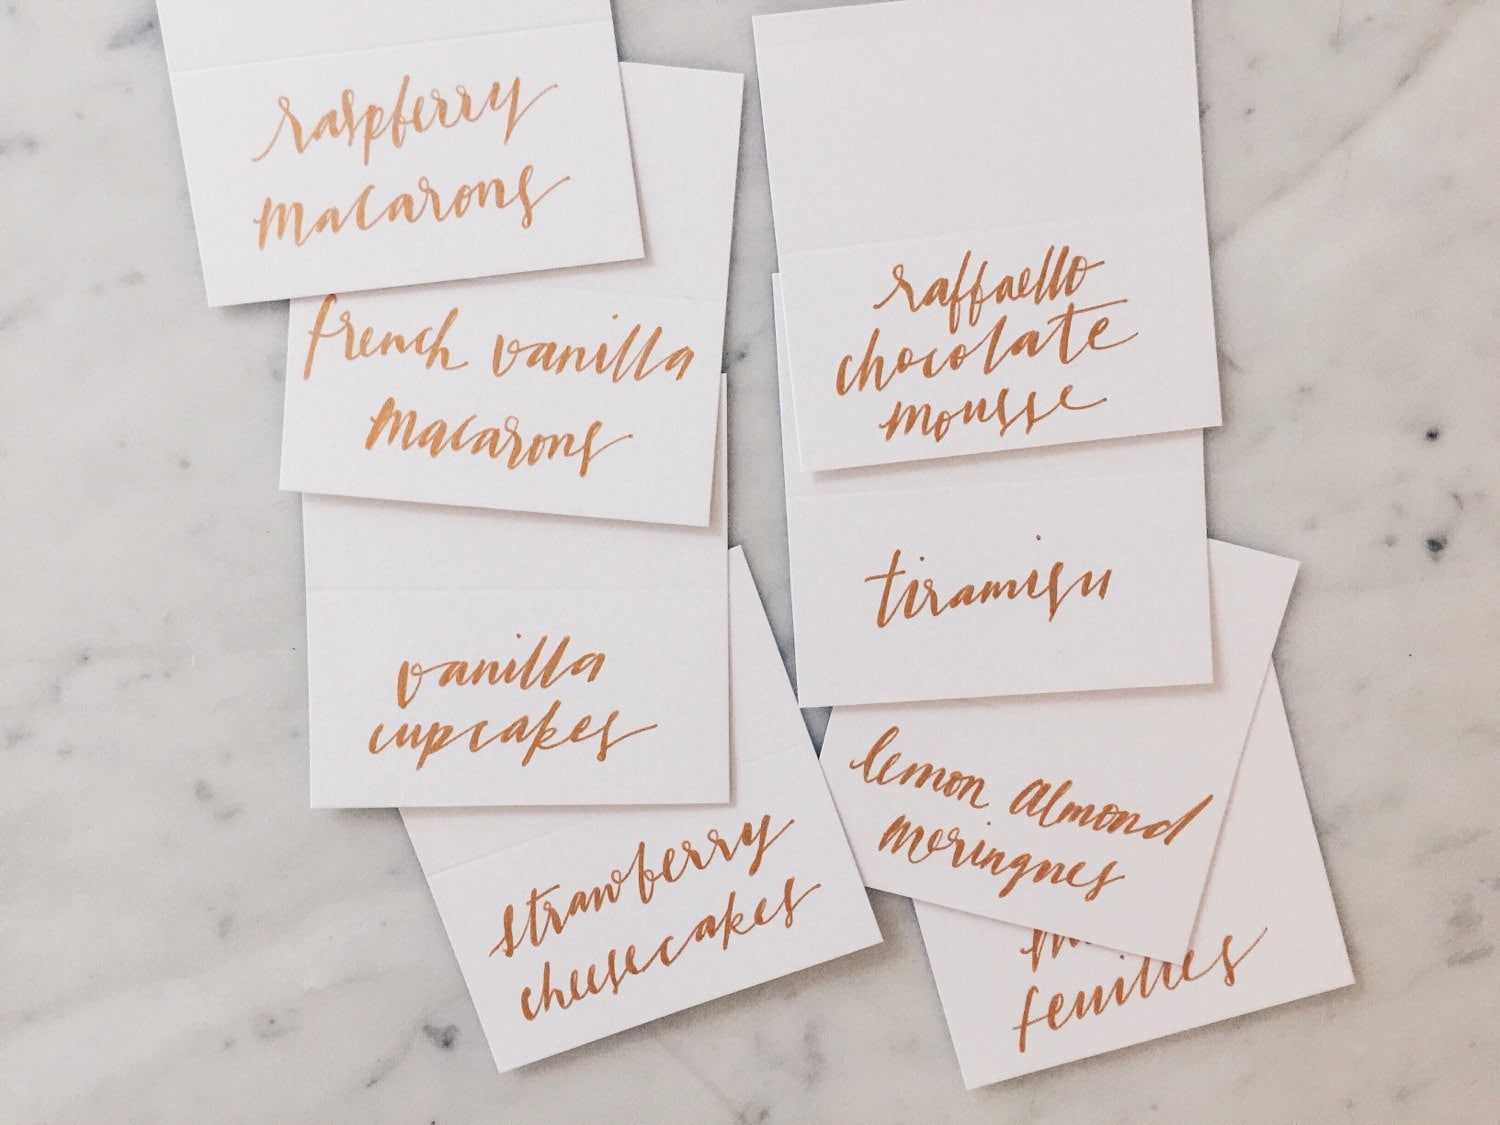 raspberry
macarons
french vanilla
macarons
vanilla
cupcakes
strawberry
cheesecakes
raffaello
chocolate
mousse
tiramisu
lemon almond
meringues
feuilles